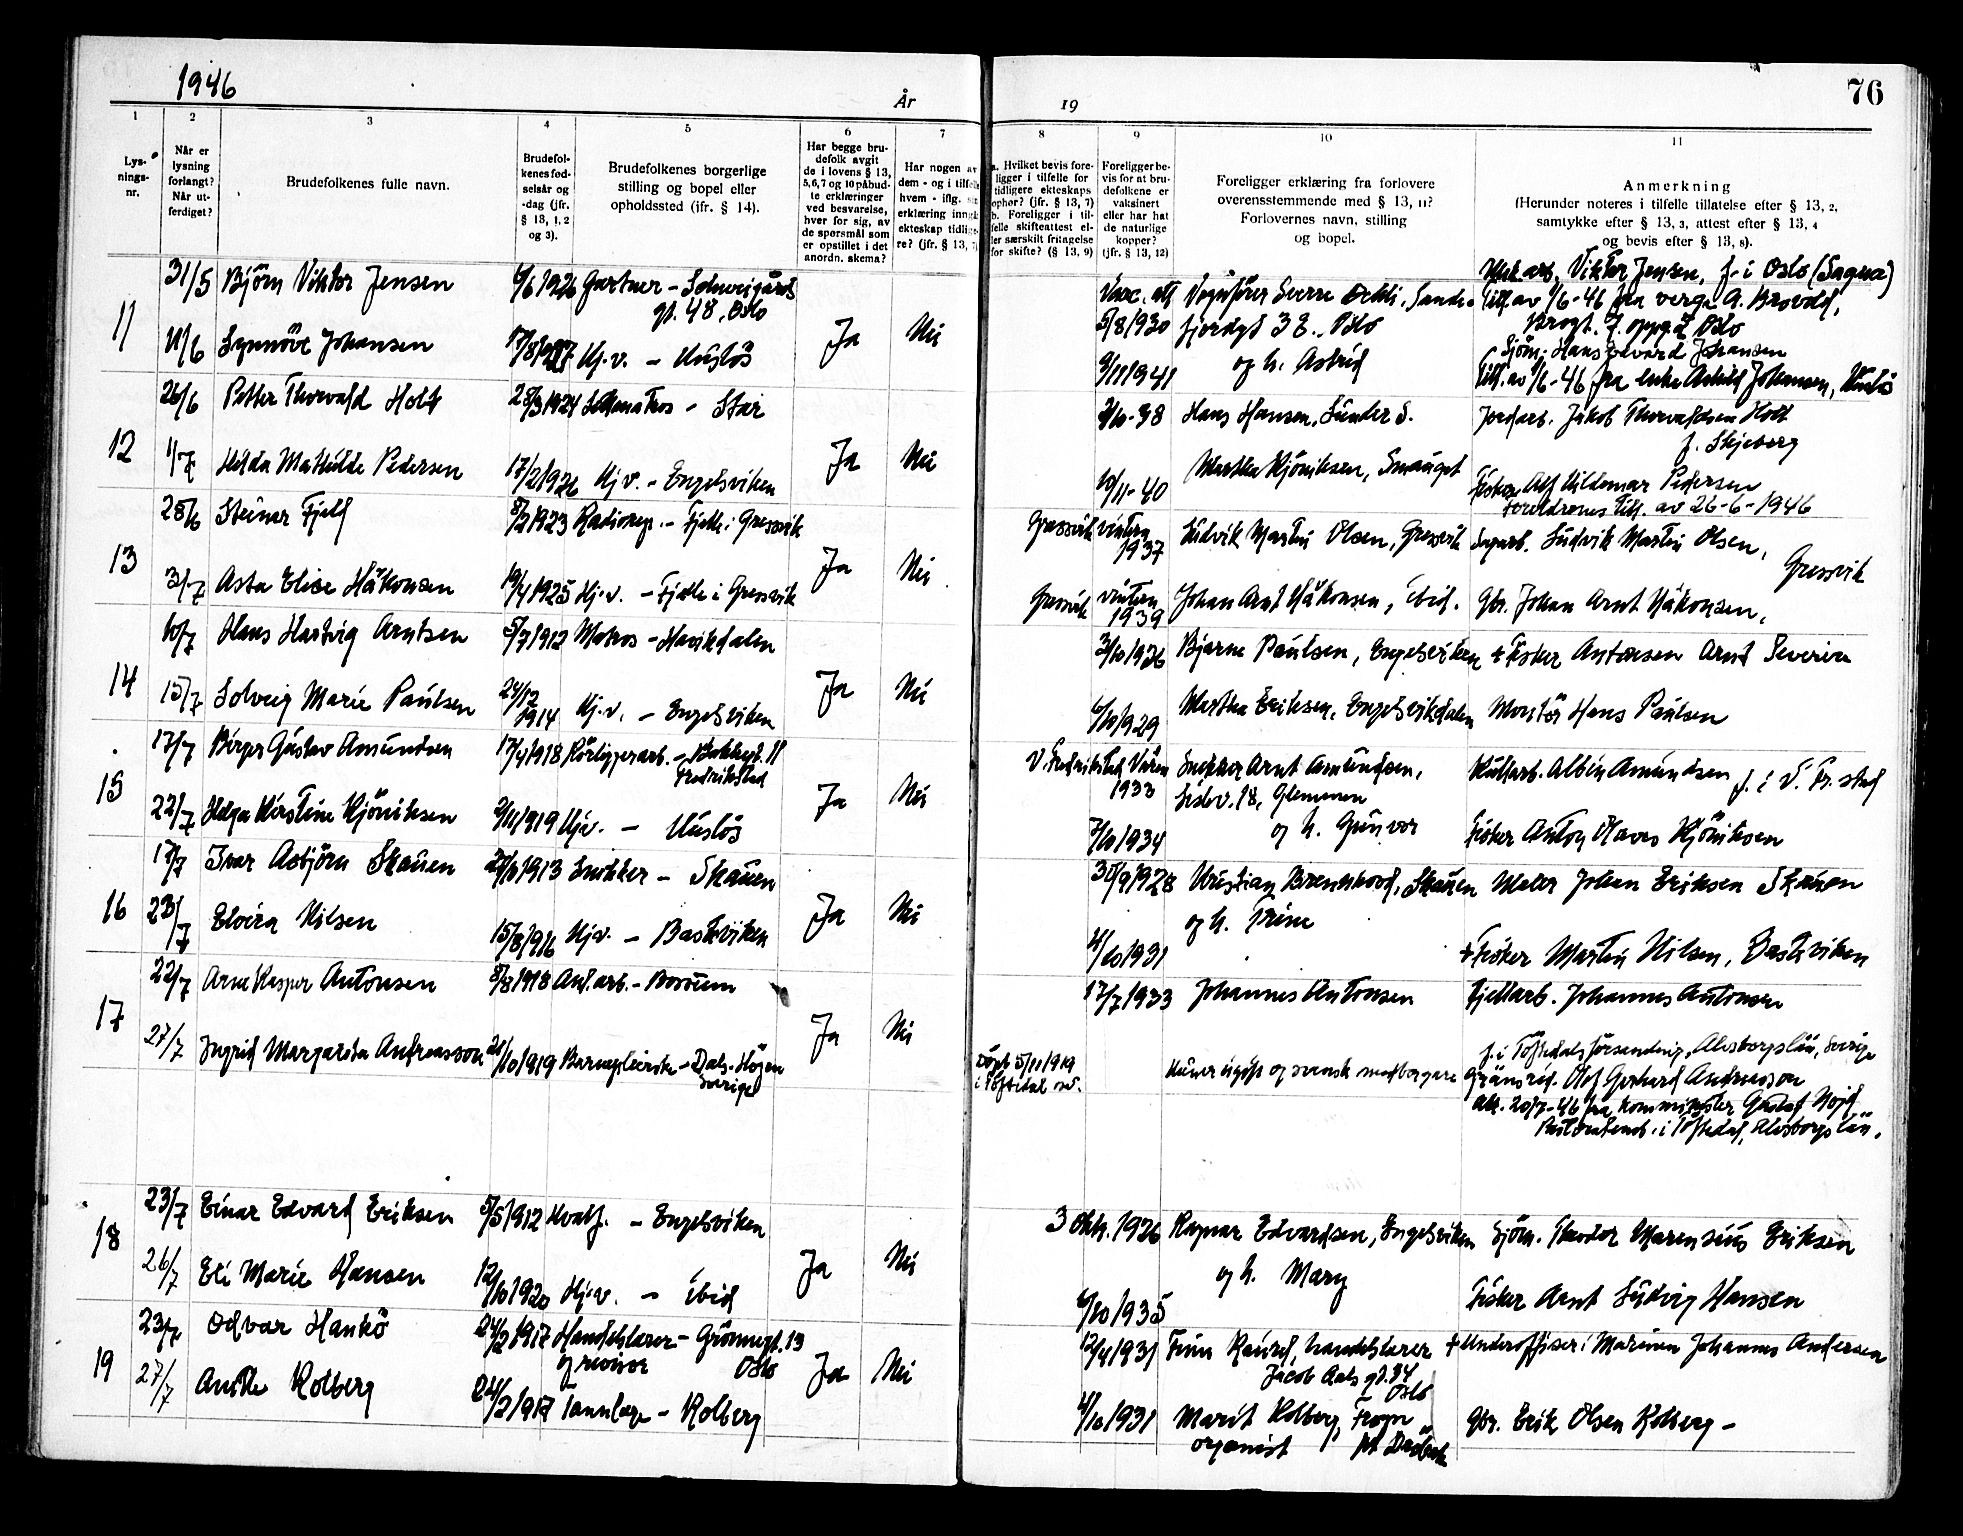 1946
År
19
76
1
2
3
4
5
6
7
8
9
10
11
Lys-
nings-
nr.
Når er
lysning
forlangt?
Når ut-
ferdiget?
Brudefolkenes fulle navn.
Brudefol-
kenes fød-
selsår og
-dag (jfr.
§ 13, 1, 2
og 3).
Brudefolkenes borgerlige
stilling og bopel eller
opholdssted (ifr. § 14).
Har begge bru-
defolk avgit
de i lovens § 13,
5, 6, 7 og 10 påbud-
te erklæringer
ved besvarelse,
hver for sig, av
de spørsmål som
er opstillet i det
anordn. skema?
Har nogen av
dem - og i tilfelle
hvem - iflg. sin
erklæring inngått
ekteskap tidlige-
re? (jfr. § 13, 7)
a. Hvilket bevis fore-
ligger i tilfelle for
tidligere ekteskaps
ophør? (jfr. § 13, 7)
b. Foreligger i til-
felle skifteattest el-
ler særskilt fritagelse
for skifte? (§ 13, 9)
Foreligger be-
vis for at bru-
defolkene er
vaksinert
eller har hat
de naturlige
kopper?
(jfr. § 13, 12)
Foreligger erklæring fra forlovere
overensstemmende med § 13, 11?
Forlovernes navn, stilling
og bopel.
Anmerkning
(Herunder noteres i tilfelle tillatelse efter § 13, 2,
samtykke efter § 13, 3, attest efter § 13, 4
og bevis efter § 13, 8).
11
31/5 Björn Viktor Jensen 6/6 1926 Gartner - Solveigårds
gt. 48, Oslo
11/6 Synnöve Johansen Hj.v. - Huslös
Ja Nei
Vacc. att
5/8 1930
9/11 1941
Sverre
3 E., Oslo
og h. Astrid
Viktor Jensen, f. i Oslo (Sagene)
Till. av 1/6-46 fra verge A. Brovold,
Oslo
Sjöm. Hans Edvard Johansen
Till. av 1/6-46 fra enke Johansen,
12
26/6 Petter Thorvald Holt 28/3 1924 - Star
1/7 Hilda Mathilde Pedersen 17/2 1926 Hj.v. - Engelsviken
Ja Nei
3/10-38 Hans Hansen, Sunder S.
10/11-40 Martha Kjöniksen, Smauget
Jordarb. Jakob Thorvaldsen Holt
f. Skjeberg
Fisker Alf Hildemar Pedersen
Foreldrenes till. av 26-6-1946
13
28/6 Steinar Fjeld 8/2 1923 Radiorep. - Fjelle i Gressvik
3/7 Asta Elise Håkonsen 19/4 1925 Hj.v. - Fjelle i Gressvik
Ja Nei
Gressvik vinteren
1937 Ludvik Martin Olsen, Gressvik Sagarb. Ludvik Martin Olsen,
Gressvik
Gressvik vinteren
1939 Johan Arnt Håkonsen, Ibid. Gbr. Johan Arnt Håkonsen,
14
10/7 Hans Hartvig Arntsen 5/7 1912 Matros - Havikdalen
15/7 Solveig Marie Paulsen 24/12
1914 Hj.v. - Engelsviken
Ja Nei
3/10 1926 Bjarne Paulsen, Engelsviken + Fisker Antonsen Arnt Severin
6/10 1929 Martha Eriksen, Engelsvikdalen Montör Hans Paulsen
15
17/7 Birger Gustav Amundsen 17/4 1918 Rörliggerarb. - 11
Fredrikstad
22/7 Helga Kirstine Kjöniksen 2/11 1919 Hjv. - Huslös
Ja Nei
V. Fredrikstad Våren
1933 Snekker Arnt Amundsen,
18, Glemmen
og h. Gunvor
7/10 1934
Albin Amundsen f. i V. Fr.stad
Fisker Anton Haves Kjöniksen
16
17/7 Ivar Asbjörn Skauen 27/10 1913 Snekker - Skauen
23/7 Elvira Nilsen 15/8 1916 Hjv. - Bastviken
Ja Nei
30/9 1928 Kristian Brennhood, Skauen
og h. Trine
4/10 1931
Maler Johan Eriksen Skauen
+ Fisker Martin Nilsen, Bastviken
17
22/7 Arne Kasper Antonsen 5/8 1918 Anl.arb. - Borøum
27/7 Ingrid Margareta Andreasson 21/10 1919 Barnepleierske - Dals-Högen
Sverige
Ja Nei
17/7 1933 Johannes Antonsen Fjellarb. Johannes Antonsen
Döpt 5/11 1919
i Töftedal sv.
Kuner ugift og svensk medborgare
f. i Töftedals församling, Älvsborgslän, Sverige
Olof Gerhard Andreasson
Att. 20/7-46 fra komminister Gustaf Nöjd
i Töftedal, Älvsborgslän.
18
23/7 Einar Edvard Eriksen 5/5 1912 Hvalf. - Engelsviken
26/7 Eli Marie Hansen 12/10 1920 Hj.v. - ibid
Ja Nei
3 Okt. 1926 Ragnar Edvardsen, Engelsviken
og h. Mary
6/10 1935
Sjöm. Theodor Marensius Eriksen
Fisker Arnt Ludvig Hansen
19
23/7 Odvar Hankö 24/2 1917 Handelslærer - Grönnegt. 13
og revisor Oslo
27/7 Anitte Kolberg 24/2 1917 Tannlæge - Kolberg
Ja Nei
12/4 1931 Finn handelslærer
Jacob Aalsgt. 34
Oslo
4/10 1931 Marit Kolberg, Frogn
organist pr. Drøbak
+ Underoffiser i Marinen Johannes Andersen
Gbr. Erik Olsen Kolberg -